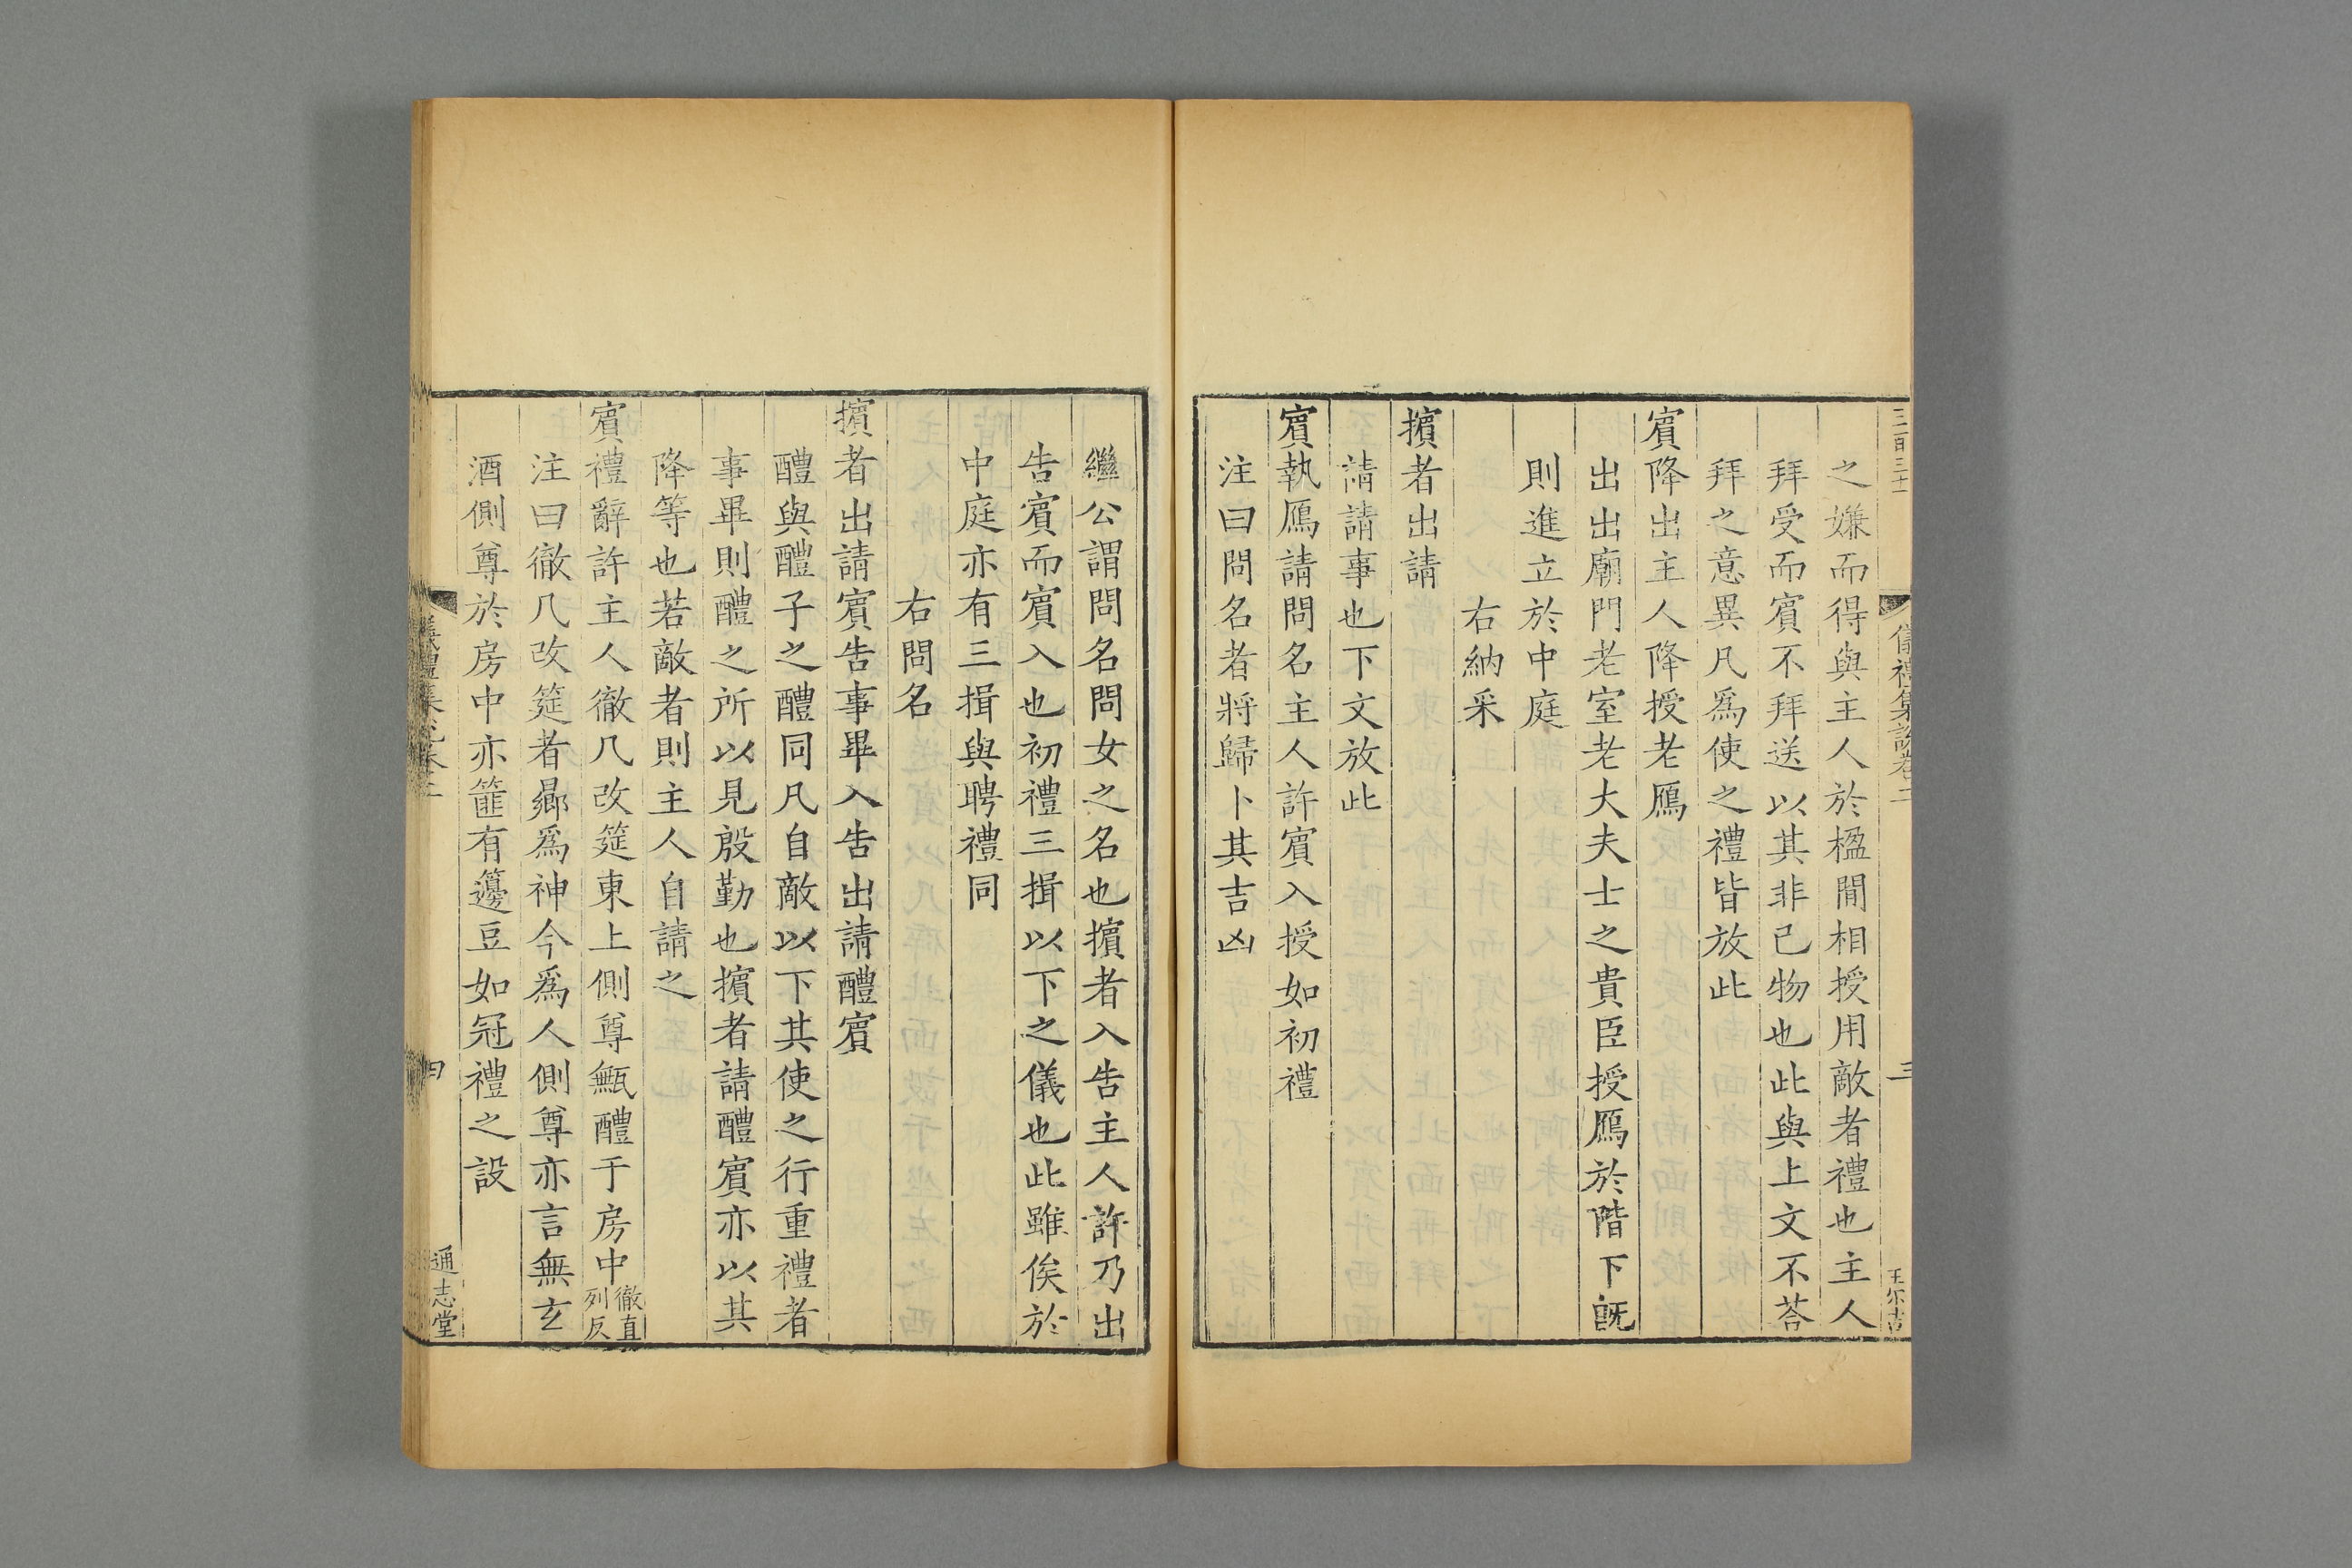 儀禮集說卷二
三
之嫌而得與主人於楹間相授用敵者禮也主人
拜受而賓不拜送以其非己物也此與上文不荅
拜之意異凡爲使之禮皆放此
賓降出主人降授老鴈
出出廟門老室老大夫士之貴臣授鴈於階下旣
則進立於中庭
右納采
擯者出請
請請事也下文放此
賓執鴈請問名主人許賓入授如初禮
注曰問名者將歸卜其吉凶
繼公謂問名問女之名也擯者入告主人許乃出
告賓而賓入也初禮三揖以下之儀也此雖俟於
中庭亦有三揖與聘禮同
右問名
擯者出請賓告事畢入告出請醴賓
醴與醴子之醴同凡自敵以下其使之行重禮者
事畢則醴之所以見殷勤也擯者請醴賓亦以其
降等也若敵者則主人自請之
賓禮辭許主人徹几改筵東上側尊甒醴于房中徹直列反
注曰徹几改筵者曏爲神今爲人側尊亦言無玄
酒側尊於房中亦篚有籩豆如冠禮之設
四
通志堂